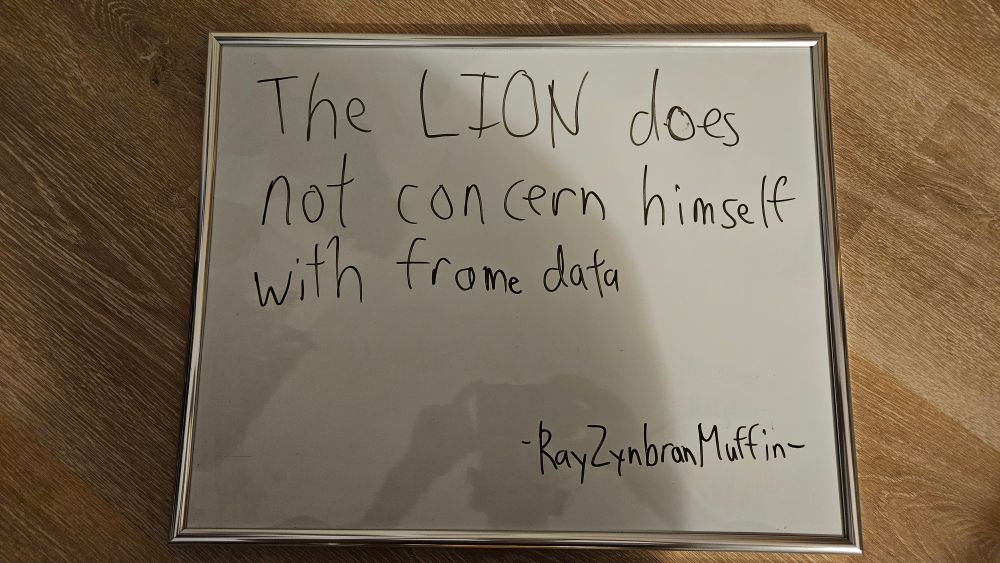 The LION does
not concern himself
with frame data
-RayZynbranMuffin-